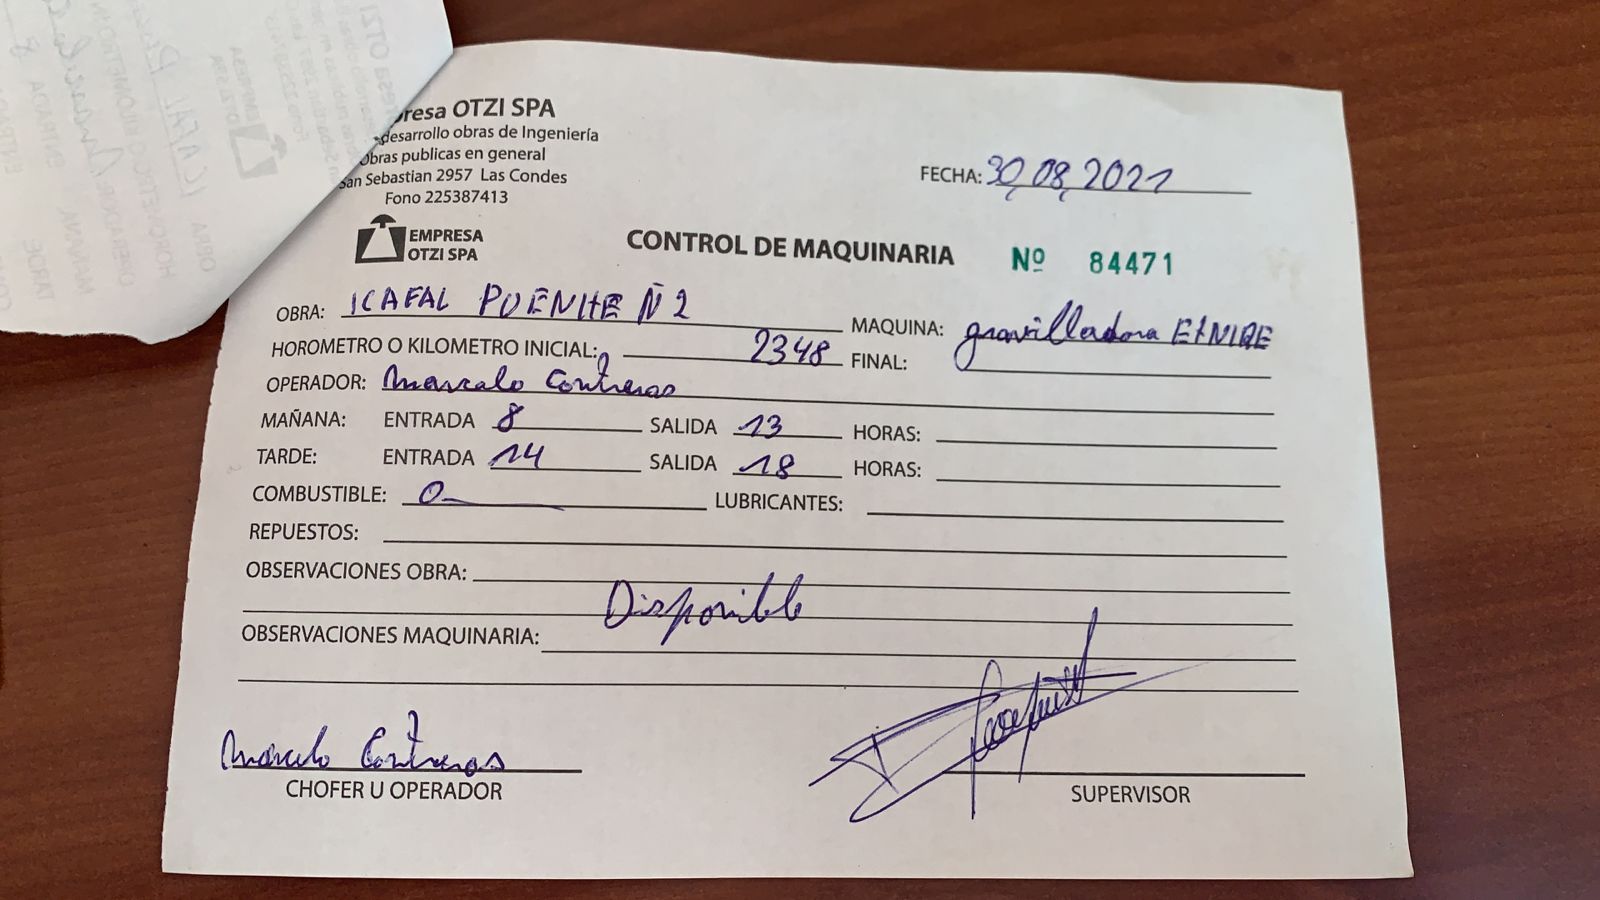 presa OTZI SPA
desarrollo obras de Ingeniería
Obras publicas en general
San Sebastian 2957 Las Condes
Fono 225387413
EMPRESA
OTZI SPA
FECHA: 30,08,2021
CONTROL DE MAQUINARIA Nº 84471
OBRA: ICAFAL PUENTE Ñ 2
MAQUINA: gravilladora ETNIRE
HOROMETRO O KILOMETRO INICIAL: 2348 FINAL:
OPERADOR: Marcalo Contreras
MAÑANA: ENTRADA 8 SALIDA 13 HORAS:
TARDE: ENTRADA 14 SALIDA 18 HORAS:
COMBUSTIBLE: 0 LUBRICANTES:
REPUESTOS:
OBSERVACIONES OBRA:
Disponible
OBSERVACIONES MAQUINARIA:
Marcelo Contreras
CHOFER U OPERADOR
SUPERVISOR